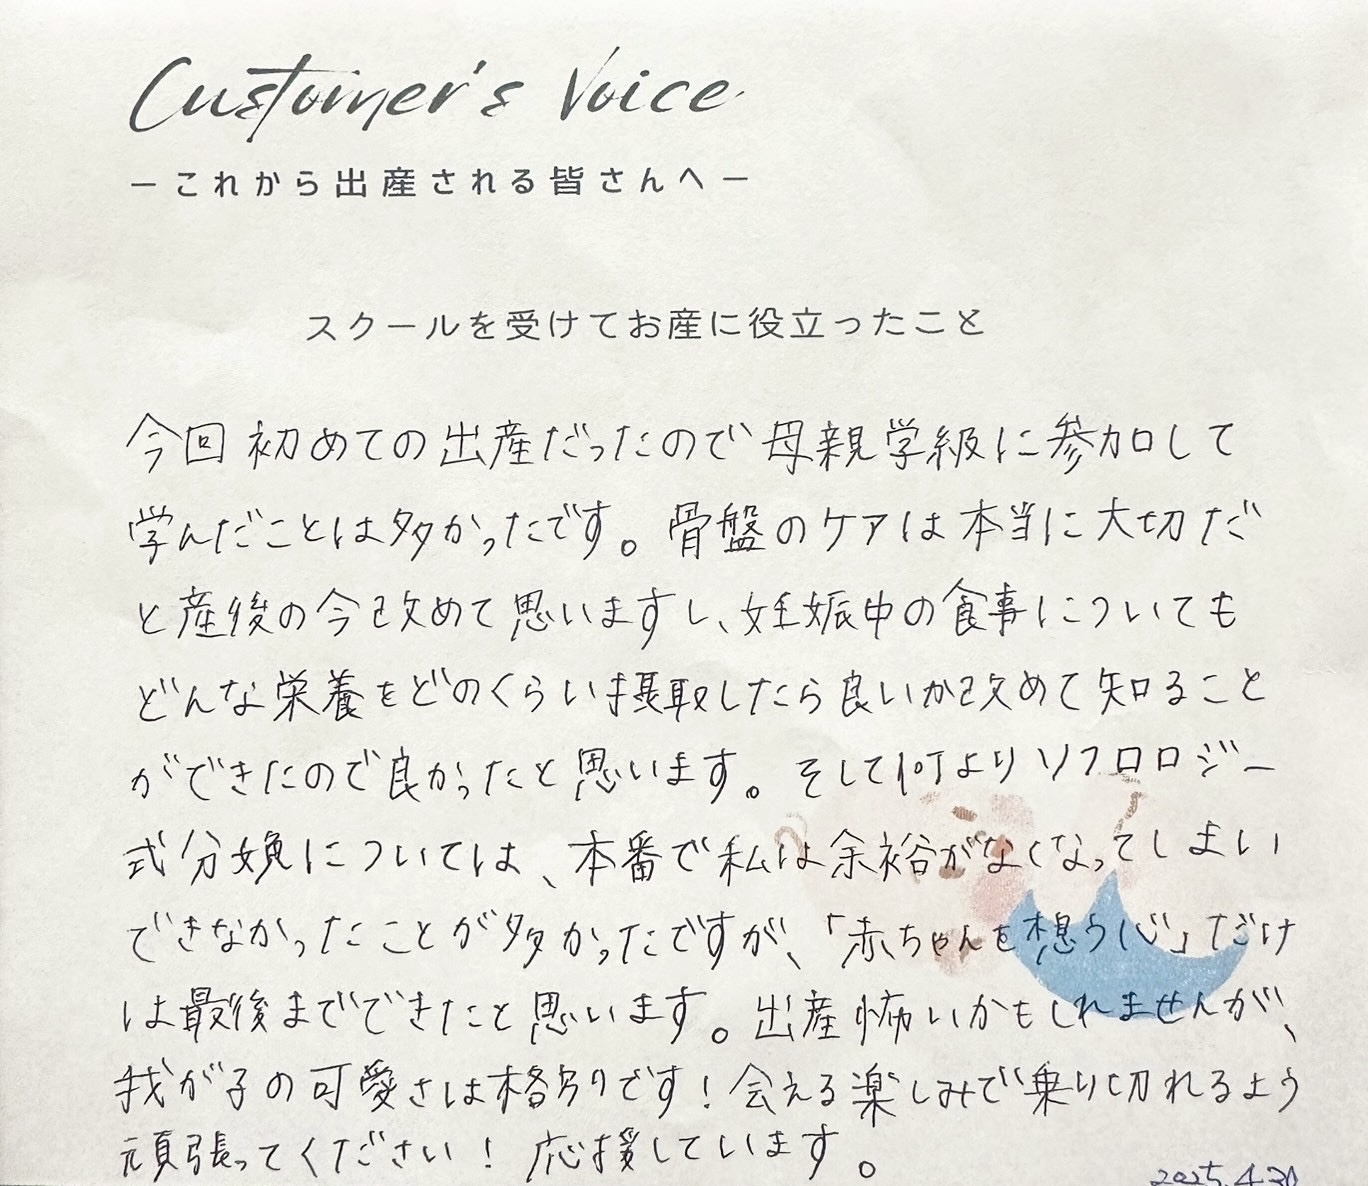 Customer's Voice
ーこれから出産される皆さんへー
スクールを受けてお産に役立ったこと
今回初めての出産だったので母親学級に参加して
学んだことは多かったです。骨盤のケアは本当に大切だ
と産後の今改めて思いますし、妊娠中の食事についても
どんな栄養をどのくらい摂取したら良いか改めて知ること
ができたので良かったと思います。そして何よりソフロロジー
式分娩については、本番で私は余裕がなくなってしまい
できなかったことが多かったですが、「赤ちゃんを想う心」だけ
は最後までできたと思います。出産怖いかもしれませんが、
我が子の可愛さは格別です!会える楽しみで乗り切れるよう
頑張ってください!応援しています。
2025.4.30